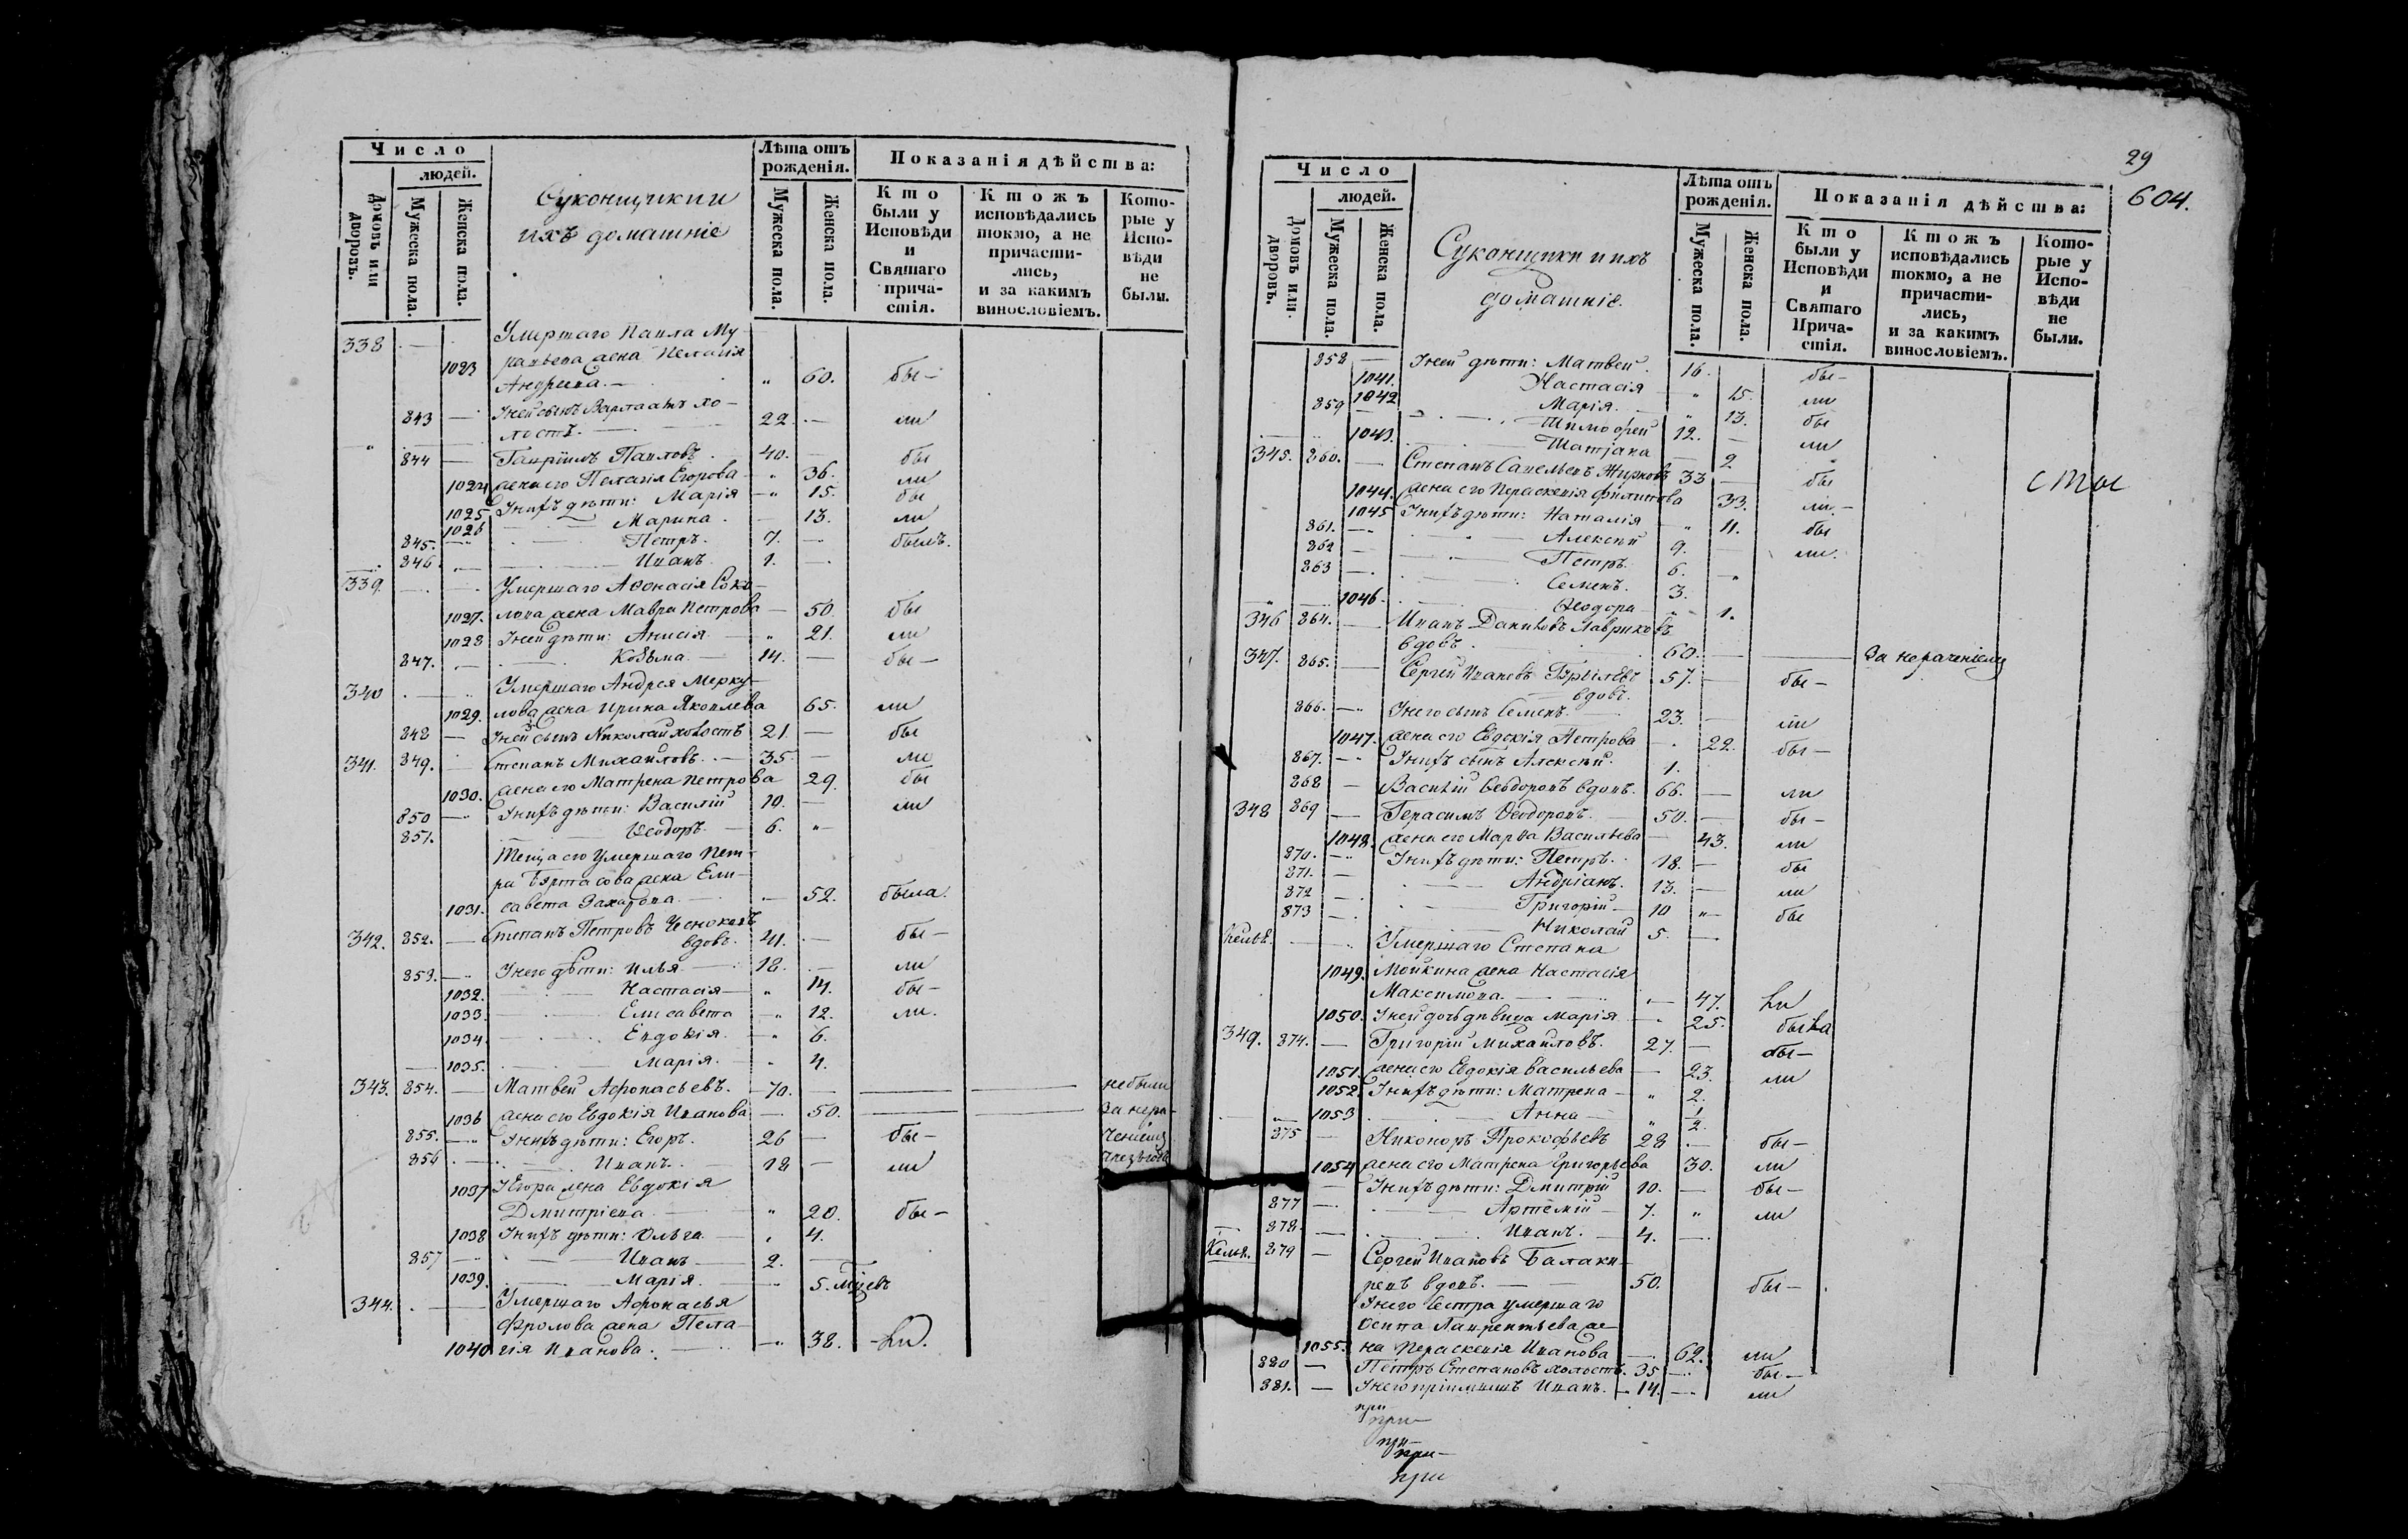 Число
людей.
Домовъ или дворовъ.
Мужеска пола.
Женска пола.
Суконщики и
ихъ домашніе
Лѣта отъ
рожденія.
Мужеска пола.
Женска пола.
Показанія дѣйства:
Кто
были у
Исповѣди
и
Святаго
прича-
стія.
Ктожъ
исповѣдались
токмо, а не
причасти-
лись,
и за какимъ
винословіемъ.
Кото-
рые у
Испо-
вѣди
не
были.
338 Умершаго Павла Му-
1023 жена Пелагія
Андреева. 60. бы-
843 У ней сынъ Варлаамъ хо-
лостъ. 22. ли
844 Гаврiилъ Павловъ. 40. бы
1024 жена его Пелагія Егорова 36. ли
1025 У нихъ дѣти: Марія 15. бы
1026 Марина. 13. ли
845. Петръ. 7. былъ.
846 Иванъ. 1.
339. Умершаго Аѳонасія Соко-
1027. лова жена Мавра Петрова 50. бы
1028 У ней дѣти: Анисія 21. ли
847. Козьма. 14. бы-
340 Умершаго Андрея Мерку-
1029. лова жена Ирина Яковлева 65. ли
848 У ней сынъ Николай холостъ 21. бы
341. 849. Степанъ Михайловъ. 35. ли
1030. жена его Матрена Петрова 29. бы
850 У нихъ дѣти: Василій 10. ли
851. Ѳеодоръ. 6.
Теща его умершаго Пет-
ра жена Ели-
1031. савета Захарова. 52. была.
342. 852. Степанъ Петровъ Чесноковъ
вдовъ. 41. бы-
853. У него дѣти: Илья 18. ли
1032. Настасія 14. бы-
1033. Елисавета 12. ли.
1034. Евдокія. 6.
1035. Марія. 4.
343. 854. Матвей Афонасьевъ. 70. не были
1036 жена его Евдокія Иванова 50. за нера-
855. У нихъ дѣти: Егоръ. 26 бы- ченіемъ
856 Иванъ. 18 ли
1037 У Егора жена Евдокія
Дмитріева 20. бы-
1038 У нихъ дѣти: Ольга. 4.
857 Иванъ 2.
1039. Марія. 5. мцевъ
344. Умершаго Афонасья
Фролова жена Пела-
1040 гія Иванова. 38. ли.
29
604.
Число
людей.
Домовъ или дворовъ.
Мужеска пола.
Женска пола.
Суконщики и ихъ
домашніе.
Лѣта отъ
рожденія.
Мужеска пола.
Женска пола.
Показанія дѣйства:
Кто
были у
Исповѣди
и
Святаго
Прича-
стія.
Ктожъ
исповѣдались
токмо, а не
причасти-
лись,
и за какимъ
винословіемъ.
Кото-
рые у
Испо-
вѣди
не
были.
858 У ней дѣти: Матвей. 16. бы-
1041. Настасія 15. ли
1042 Марія. 13. бы
859 Тимофей 12. ли
1043. Татіана 2
345. 860. Степанъ Савельевъ Жирновъ 33 бы
1044. жена его Пераскевія Филипова 33. ли.
1045 У нихъ дѣти: Наталія 11. бы
861. Алексѣй 9. ли.
862 Петръ. 6.
863 Семенъ. 3.
1046. Ѳеодора 1.
346 864. Иванъ Даниловъ Лавриковъ
вдовъ. 60. За нераченіемъ
347. 865. Сергей Ивановъ
вдовъ. 57. бы-
866. У него сынъ Семенъ. 23. ли
1047. жена его Евдокія Петрова 22. бы-
867. У нихъ сынъ Алексѣй. 1.
868 Василій Ѳеодоровъ вдовъ. 66. ли
348 869 Герасимъ Ѳеодоровъ. 50. бы-
1048. жена его Марѳа Васильева 43. ли
870. У нихъ дѣти: Петръ. 18. бы
871. Андріанъ. 13. ли
872 Григорій 10 бы
873 Николай 5.
Келья. Умершаго Степана
1049. Мойкина жена Настасія
Максимова. 47. ли
1050. У ней дочь дѣвица Марія 25. была
349. 874. Григорій Михайловъ. 27. бы-
1051. жена его Евдокія Васильева 23. ли
1052. У нихъ дѣти: Матрена 2.
1053 Анна 1/2.
875 Никоноръ Прокофьевъ 28 бы-
1054 жена его Матрена Григорьева 30. ли
У нихъ дѣти: Дмитрій 10. бы-
877 Артемій 7. ли
878. Иванъ. 4.
Келья. 879 Сергей Ивановъ Балаки-
ревъ вдовъ. 50. бы-
У него сестра умершаго
Осипа Лаврентьева же-
1055. на Пераскевія Иванова 62. ли
880 Петръ Степановъ холостъ. 35. бы-
881. У него пріимышъ Иванъ. 14. ли
при
при
при-
при-
при